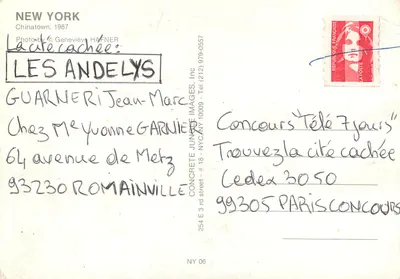 NEW YORK
Chinatown, 1987
Photo by © Geneviève HAFNER
La cité cachée:
LES ANDELYS
GUARNERI Jean-Marc
Chez Me Yvonne GARNIER
64 avenue de Metz
93230 ROMAINVILLE
CONCRETE JUNGLE IMAGES, Inc
254 E 3 rd street - # 18 - NYC NY 10009 - Tel (212) 979-0557
Concours "Télé 7 jours"
Trouvez la cité cachée
Cedex 3050
99305 PARIS CONCOURS
NY 06